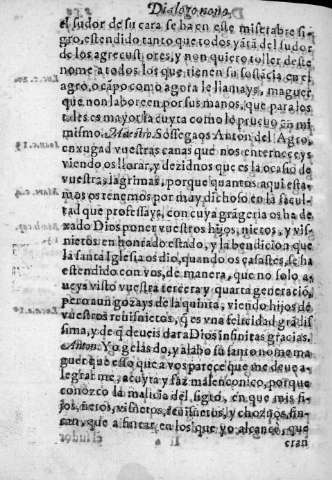 Dialogo nono.
el sudor de su cara se ha en este miserable si-
gro, estendido tanto que todos yãtã del sudor
de los agrecultores, y non quiero toller deste
nome a todos los que tienen su sostãcia en el
agro, o capo como agora le llamays, maguer
que non laboreen por sus manos, que para los
tales es mayor la cuyta como lo prueuo en mi
mismo. Maestro. Sossegaos Anton del Agro,
enxugad vuestras canas que nos enterneceys
viendo os llorar, y dezidnos que es la ocasiõ de
vuestras lagrimas, porque quantos aqui esta-
mos os tenemos por muy dichoso en la facul-
tad que professays, con cuya grãgeria os ha de
xado Dios poner vuestros hijos, nietos, y vis-
nietos en honrado estado, y la bendicion que
la sancta Iglesia os dio, quando os casastes, se ha
estendido con vos, de manera, que no solo a-
ueys visto vuestra tercera y quarta generaciõ,
pero aun gozays de la quinta, viendo hijos de
vuestros reuisnietos, q̃ es vna felicidad grãdis
sima, y de q̃ deueis dar a Dios infinitas gracias.
Anton. Yo gelas do, y alabo su santo nome ma
guer que esso que a vos parece que me deue a-
legrar me, acuyta y faz malenconico, porque
conozco la malicia del siglo, en que mis fi-
jos, nietos, visnietos, reuisnietos, y choznos, fin-
can, que a fincar en los que yo alcancè, que
eran